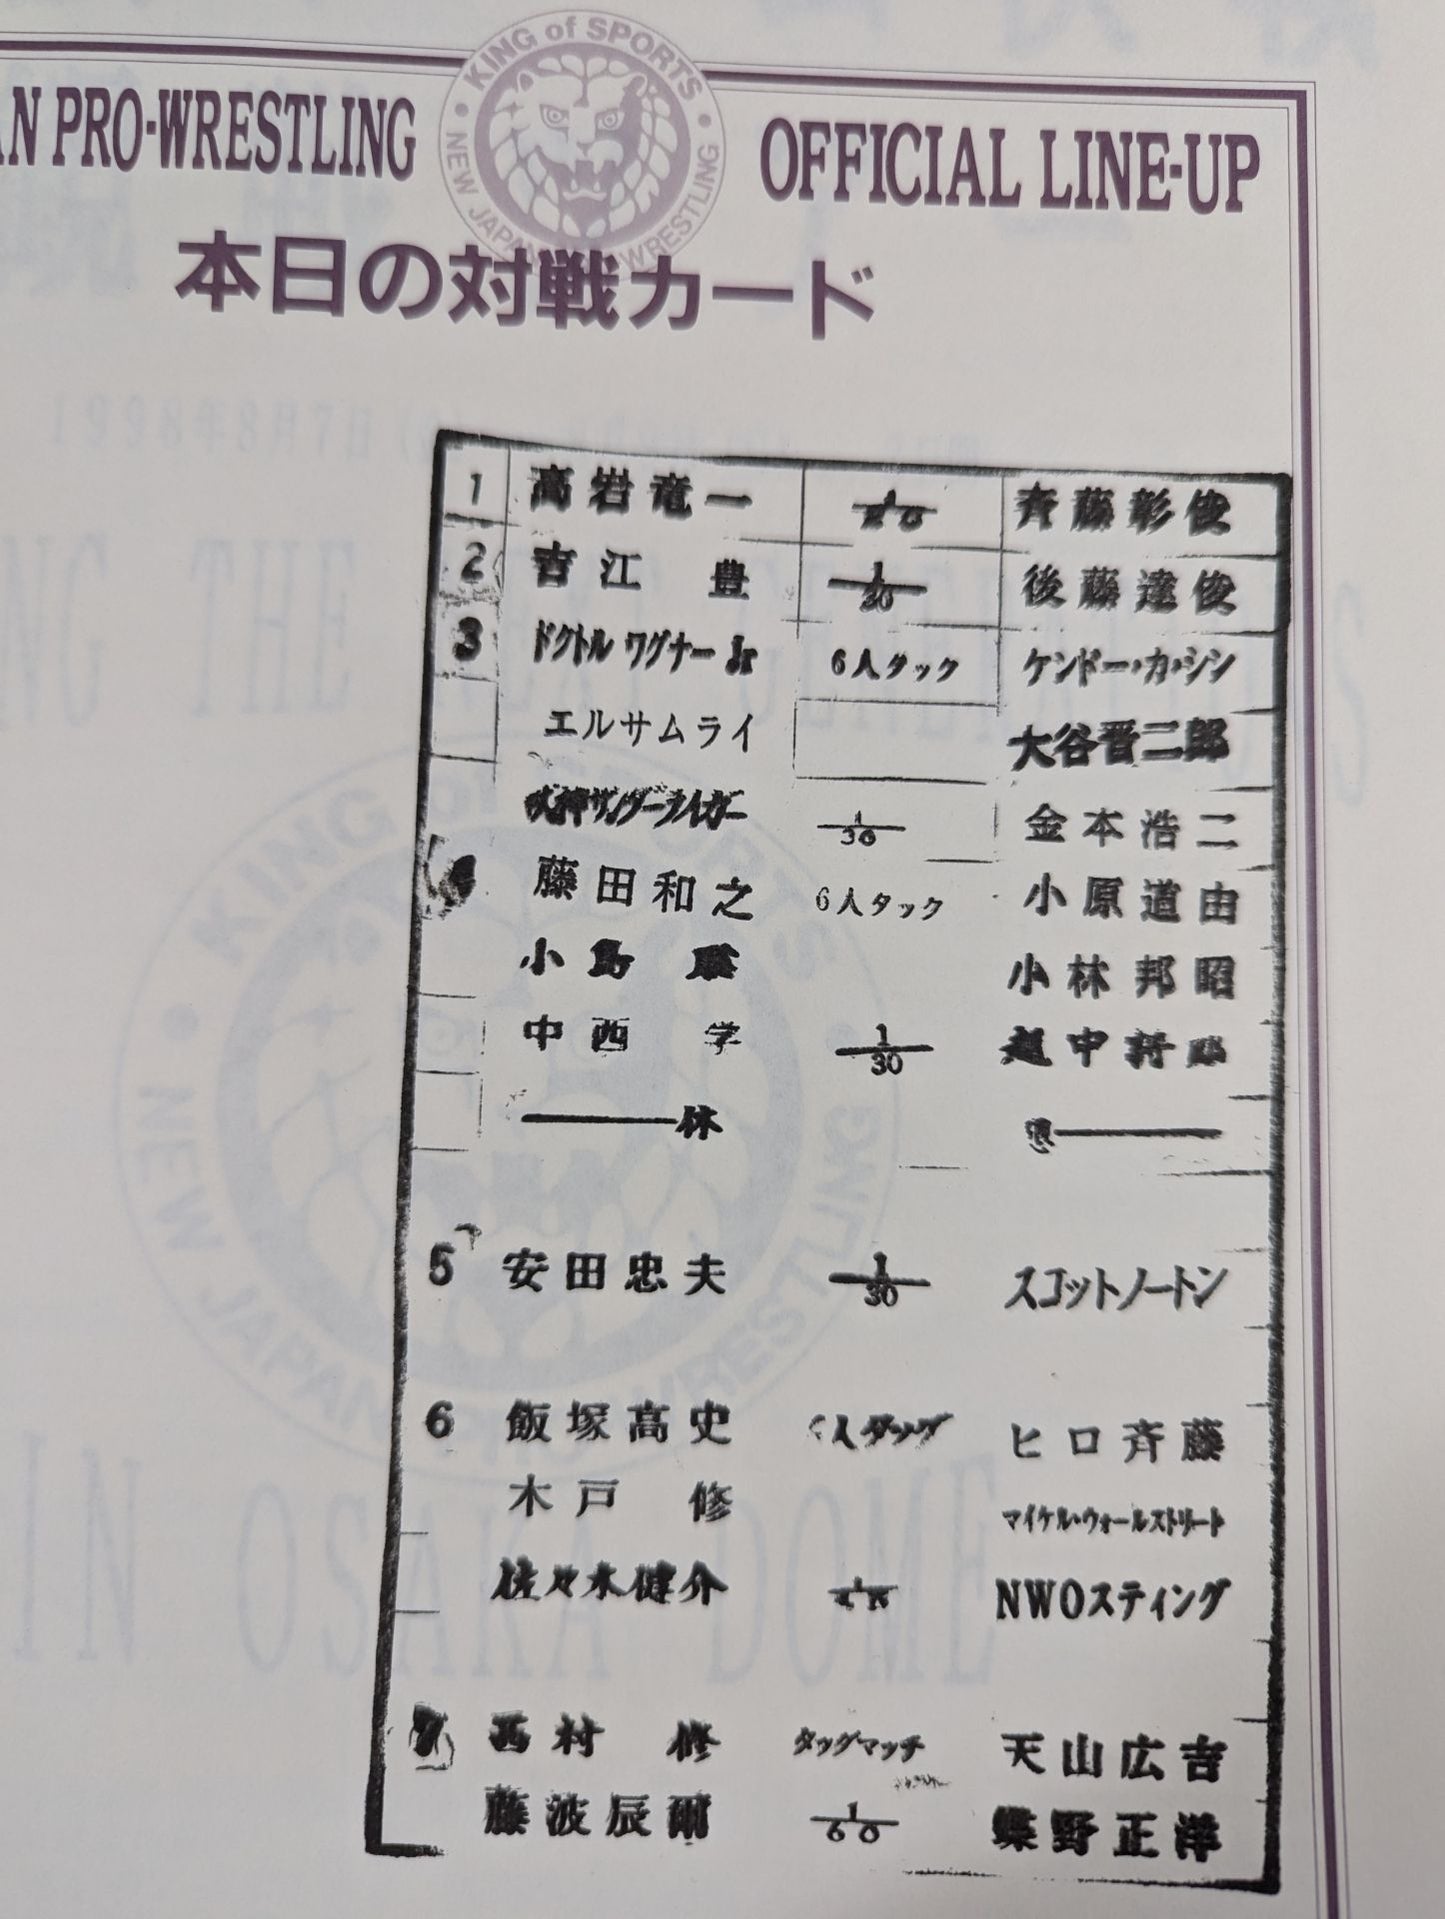 AN PRO-WRESTLING
KING of SPORTS
NEW JAPAN PRO-WRESTLING
OFFICIAL LINE-UP
本日の対戦カード
1 高岩竜一 斉藤彰俊
2 吉江 豊 1/30 後藤達俊
3 ドクトル ワグナー Jr 6人タック ケンドー・カ・シン
エルサムライ 大谷晋二郎
獣神サンダーライガー 1/30 金本浩二
藤田和之 6人タック 小原道由
小島 聡 小林邦昭
中西 学 1/30 越中詩郎
休 憩
5 安田忠夫 1/30 スコットノートン
6 飯塚高史 人タッグ ヒロ斉藤
木戸 修 マイケル・ウォールストリート
佐々木健介 NWOスティング
7 西村 修 タッグマッチ 天山広吉
藤波辰爾 1/60 蝶野正洋
1998年8月7日
THE NEXT
IN OSAKA DOME
KING of SPORTS
NEW JAPAN PRO-WRESTLING